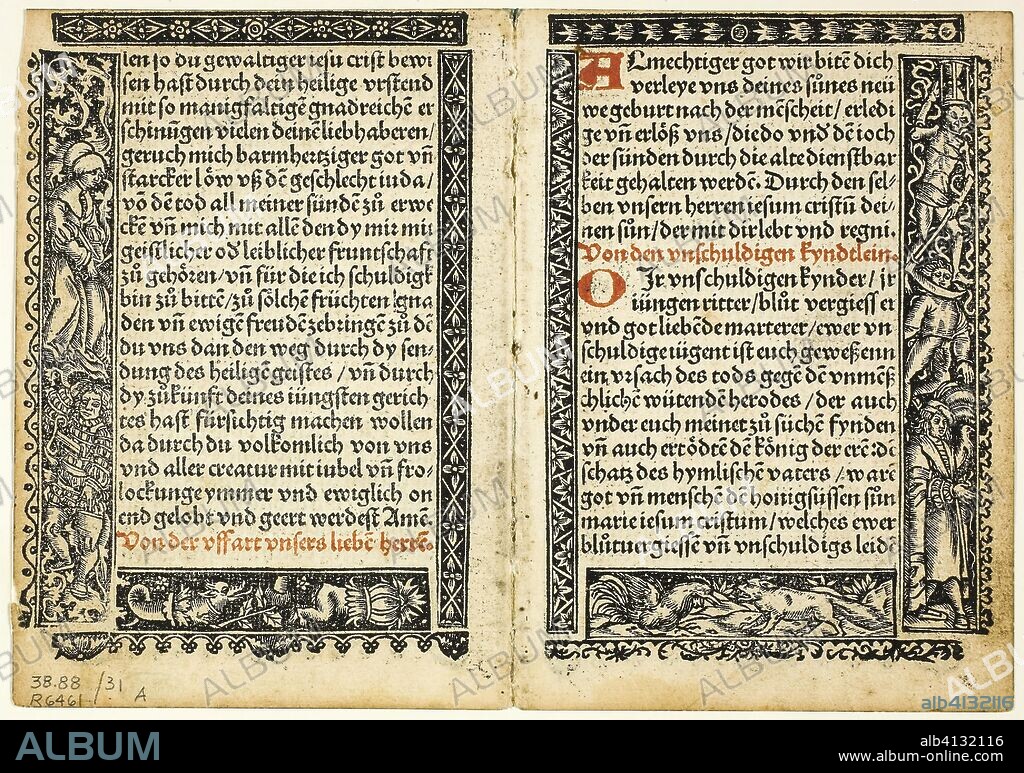 len so du gewaltiger iesu crist bewi
sen hast durch dein heilige vrstend
mit so manigfaltigē gnadreichē er
schinūgen vielen deinē liebhaberen/
geruch mich barmhertziger got vn̄
starcker löw vß dē geschlecht iuda/
vō dē tod all meiner sündē zů erwe
ckē vn̄ mich mit allē den dy mir mit
geistlicher od leiblicher fruntschaft
zů gehörē/vn̄ für die ich schuldigk
bin zů bittē/zů sölchē früchten gna
den vn̄ ewigē freudē zebringē zů dē
du vns dan den weg durch dy sen⸗
dung des heiligē geistes/vn̄ durch
dy zůkünft deines iüngsten gerich
tes hast fürsichtig machen wollen
da durch du volkomlich von vns
vnd aller creatur mit iubel vn̄ fro⸗
lockunge ymmer vnd ewiglich on
end gelobt vnd geert werdest Amē
Von der vffart vnsers liebē herrē.
38.88/31 A
R6461
ALmechtiger got wir bitē dich
verleye vns deines sůnes neü
we geburt nach der mēscheit/erledi
ge vn̄ erlöß vns/die do vnd dē ioch
der sünden durch die alte dienstbar
keit gehalten werdē. Durch den sel⸗
ben vnsern herren iesum cristū dei⸗
nen sůn/der mit dir lebt vnd regni.
Von den vnschuldigen kyndtlein.
OIr vnschuldigen kynder/ir
iüngen ritter/blůt vergiess er
vnd got liebēde marterer/ewer vn
schuldige iügent ist euch geweßenn
ein vrsach des tods gegē dē vnmēß
chlichē wütendē herodes/der auch
vnder euch meinet zů sůchē fynden
vn̄ auch ertödtē dē könig der erē:dē
schatz des hymlischē vaters/warē
got vn̄ menschē dē honigsüssen sůn
marie iesum cristum/welches ewer
blůtuergiessē vn̄ vnschuldigs leidē
ALBUM
alb4132116
ALBUM
alb4132116
www.album-online.com